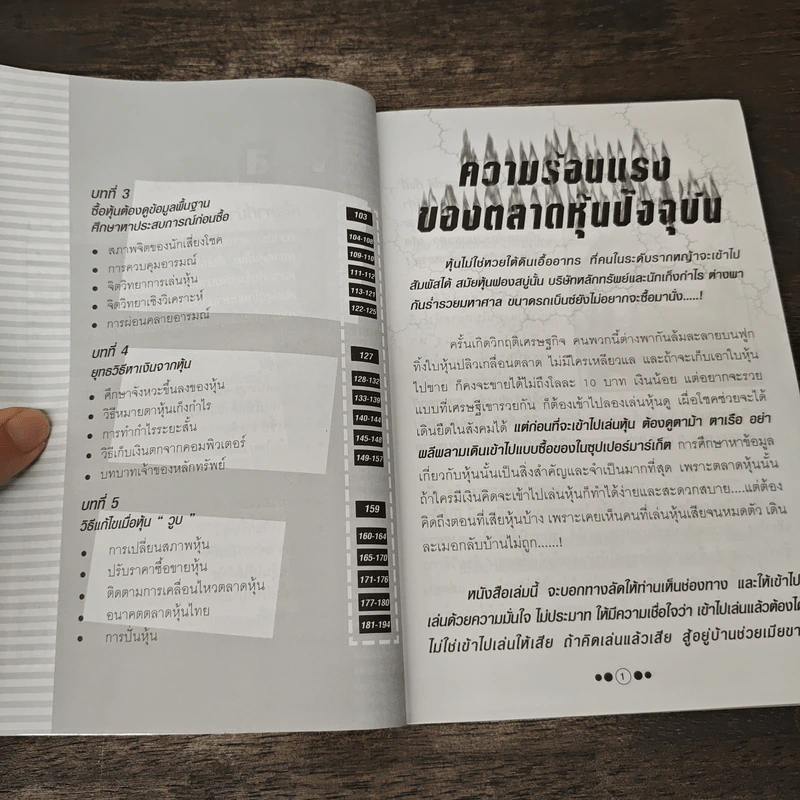 บทที่ 3
ซื้อหุ้นต้องดูข้อมูลพื้นฐาน
ศึกษาหาประสบการณ์ก่อนซื้อ 103
• สภาพจิตของนักเสี่ยงโชค 104-108
• การควบคุมอารมณ์ 109-110
• จิตวิทยาการเล่นหุ้น 111-112
• จิตวิทยาเชิงวิเคราะห์ 113-121
• การผ่อนคลายอารมณ์ 122-125
บทที่ 4
ยุทธวิธีหาเงินจากหุ้น 127
• ศึกษาจังหวะขึ้นลงของหุ้น 128-132
• วิธีหมายตาหุ้นเก็งกำไร 133-139
• การทำกำไรระยะสั้น 140-144
• วิธีเก็บเงินตกจากคอมพิวเตอร์ 145-148
• บทบาทเจ้าของหลักทรัพย์ 149-157
บทที่ 5
วิธีแก้ไขเมื่อหุ้น “ วูบ ” 159
• การเปลี่ยนสภาพหุ้น 160-164
• ปรับราคาซื้อขายหุ้น 165-170
• ติดตามการเคลื่อนไหวตลาดหุ้น 171-176
• อนาคตตลาดหุ้นไทย 177-180
• การปั่นหุ้น 181-194
ความร้อนแรง
ของตลาดหุ้นปัจจุบัน
หุ้นไม่ใช่หวยใต้ดินเอื้ออาทร ที่คนในระดับรากหญ้าจะเข้าไป
สัมผัสได้ สมัยหุ้นฟองสบู่นั้น บริษัทหลักทรัพย์และนักเก็งกำไร ต่างพา
กันร่ำรวยมหาศาล ขนาดรถเบ็นซ์ยังไม่อยากจะซื้อมานั่ง.....!
ครั้นเกิดวิกฤติเศรษฐกิจ คนพวกนี้ต่างพากันล้มละลายบนฟูก
ทิ้งใบหุ้นปลิวเกลื่อนตลาด ไม่มีใครเหลียวแล และถ้าจะเก็บเอาใบหุ้น
ไปขาย ก็คงจะขายได้ไม่ถึงโลละ 10 บาท เงินน้อย แต่อยากจะรวย
แบบที่เศรษฐีเขารวยกัน ก็ต้องเข้าไปลองเล่นหุ้นดู เผื่อโชคช่วยจะได้
เดินยืดในสังคมได้ แต่ก่อนที่จะเข้าไปเล่นหุ้น ต้องดูตาม้า ตาเรือ อย่า
พลีพลามเดินเข้าไปแบบซื้อของในซุปเปอร์มาร์เก็ต การศึกษาหาข้อมูล
เกี่ยวกับหุ้นนั้นเป็นสิ่งสำคัญและจำเป็นมากที่สุด เพราะตลาดหุ้นนั้น
ถ้าใครมีเงินคิดจะเข้าไปเล่นหุ้นก็ทำได้ง่ายและสะดวกสบาย....แต่ต้อง
คิดถึงตอนที่เสียหุ้นบ้าง เพราะเคยเห็นคนที่เล่นหุ้นเสียจนหมดตัว เดิน
ละเมอกลับบ้านไม่ถูก......!
หนังสือเล่มนี้ จะบอกทางลัดให้ท่านเห็นช่องทาง และให้เข้าไป
เล่นด้วยความมั่นใจ ไม่ประมาท ให้มีความเชื่อใจว่า เข้าไปเล่นแล้วต้องได้
ไม่ใช่เข้าไปเล่นให้เสีย ถ้าคิดเล่นแล้วเสีย สู้อยู่บ้านช่วยเมียขา
1